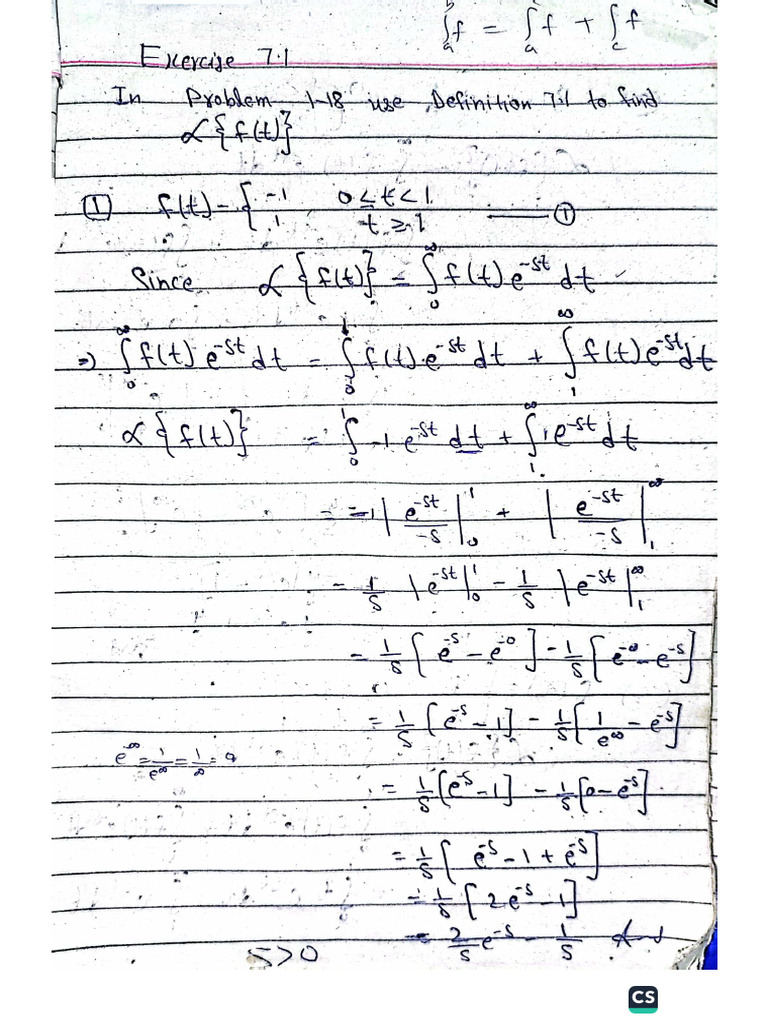 ∫ₐᵇ f = ∫ₐᶜ f + ∫ f
Exercise 7.1
In Problem 1-18 use Definition 7.1 to find
ℒ{f(t)}
① f(t) = { -1 0 ≤ t < 1
1 t ≥ 1 —— ①
Since ℒ{f(t)} = ∫₀^∞ f(t) e^{-st} dt
⇒ ∫₀^∞ f(t) e^{-st} dt = ∫₀¹ f(t) e^{-st} dt + ∫₁^∞ f(t) e^{-st} dt
ℒ{f(t)} = ∫₀¹ -1 e^{-st} dt + ∫₁^∞ 1 e^{-st} dt
= -1 | e^{-st}/-s |₀¹ + | e^{-st}/-s |₁^∞
= 1/s | e^{-st} |₀¹ - 1/s | e^{-st} |₁^∞
= 1/s [ e^{-s} - e^{-0} ] - 1/s [ e^{-∞} - e^{-s} ]
= 1/s [ e^{-s} - 1 ] - 1/s [ 1/e^∞ - e^{-s} ]
e^{-∞} = 1/e^∞ = 1/∞ = 0
= 1/s [ e^{-s} - 1 ] - 1/s [ 0 - e^{-s} ]
= 1/s [ e^{-s} - 1 + e^{-s} ]
= 1/s [ 2e^{-s} - 1 ]
s > 0 = 2/s e^{-s} - 1/s
CS